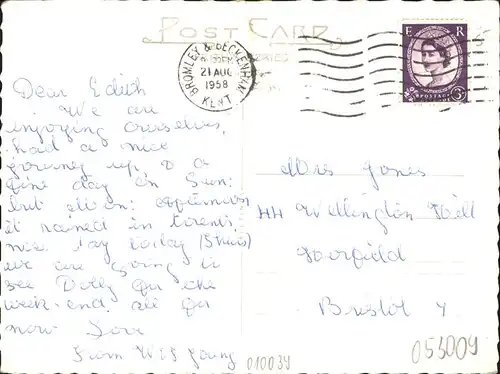 POST CARD
BROMLEY & BECKENHAM
21 AUG
1958
KENT
E R
POSTAGE
3D
Dear Edith
We are
injoying ourselves,
had a nice
journey up & a
fine day on Sun:
but Mon: afternoon
it rained in torents
nice day today (Thurs)
we are going to
see Dolly for the
week-end. all for
now Love
From W & S young
Mrs Jones
44 Wellington Hill
Horfield
Bristol 7
010039
053009